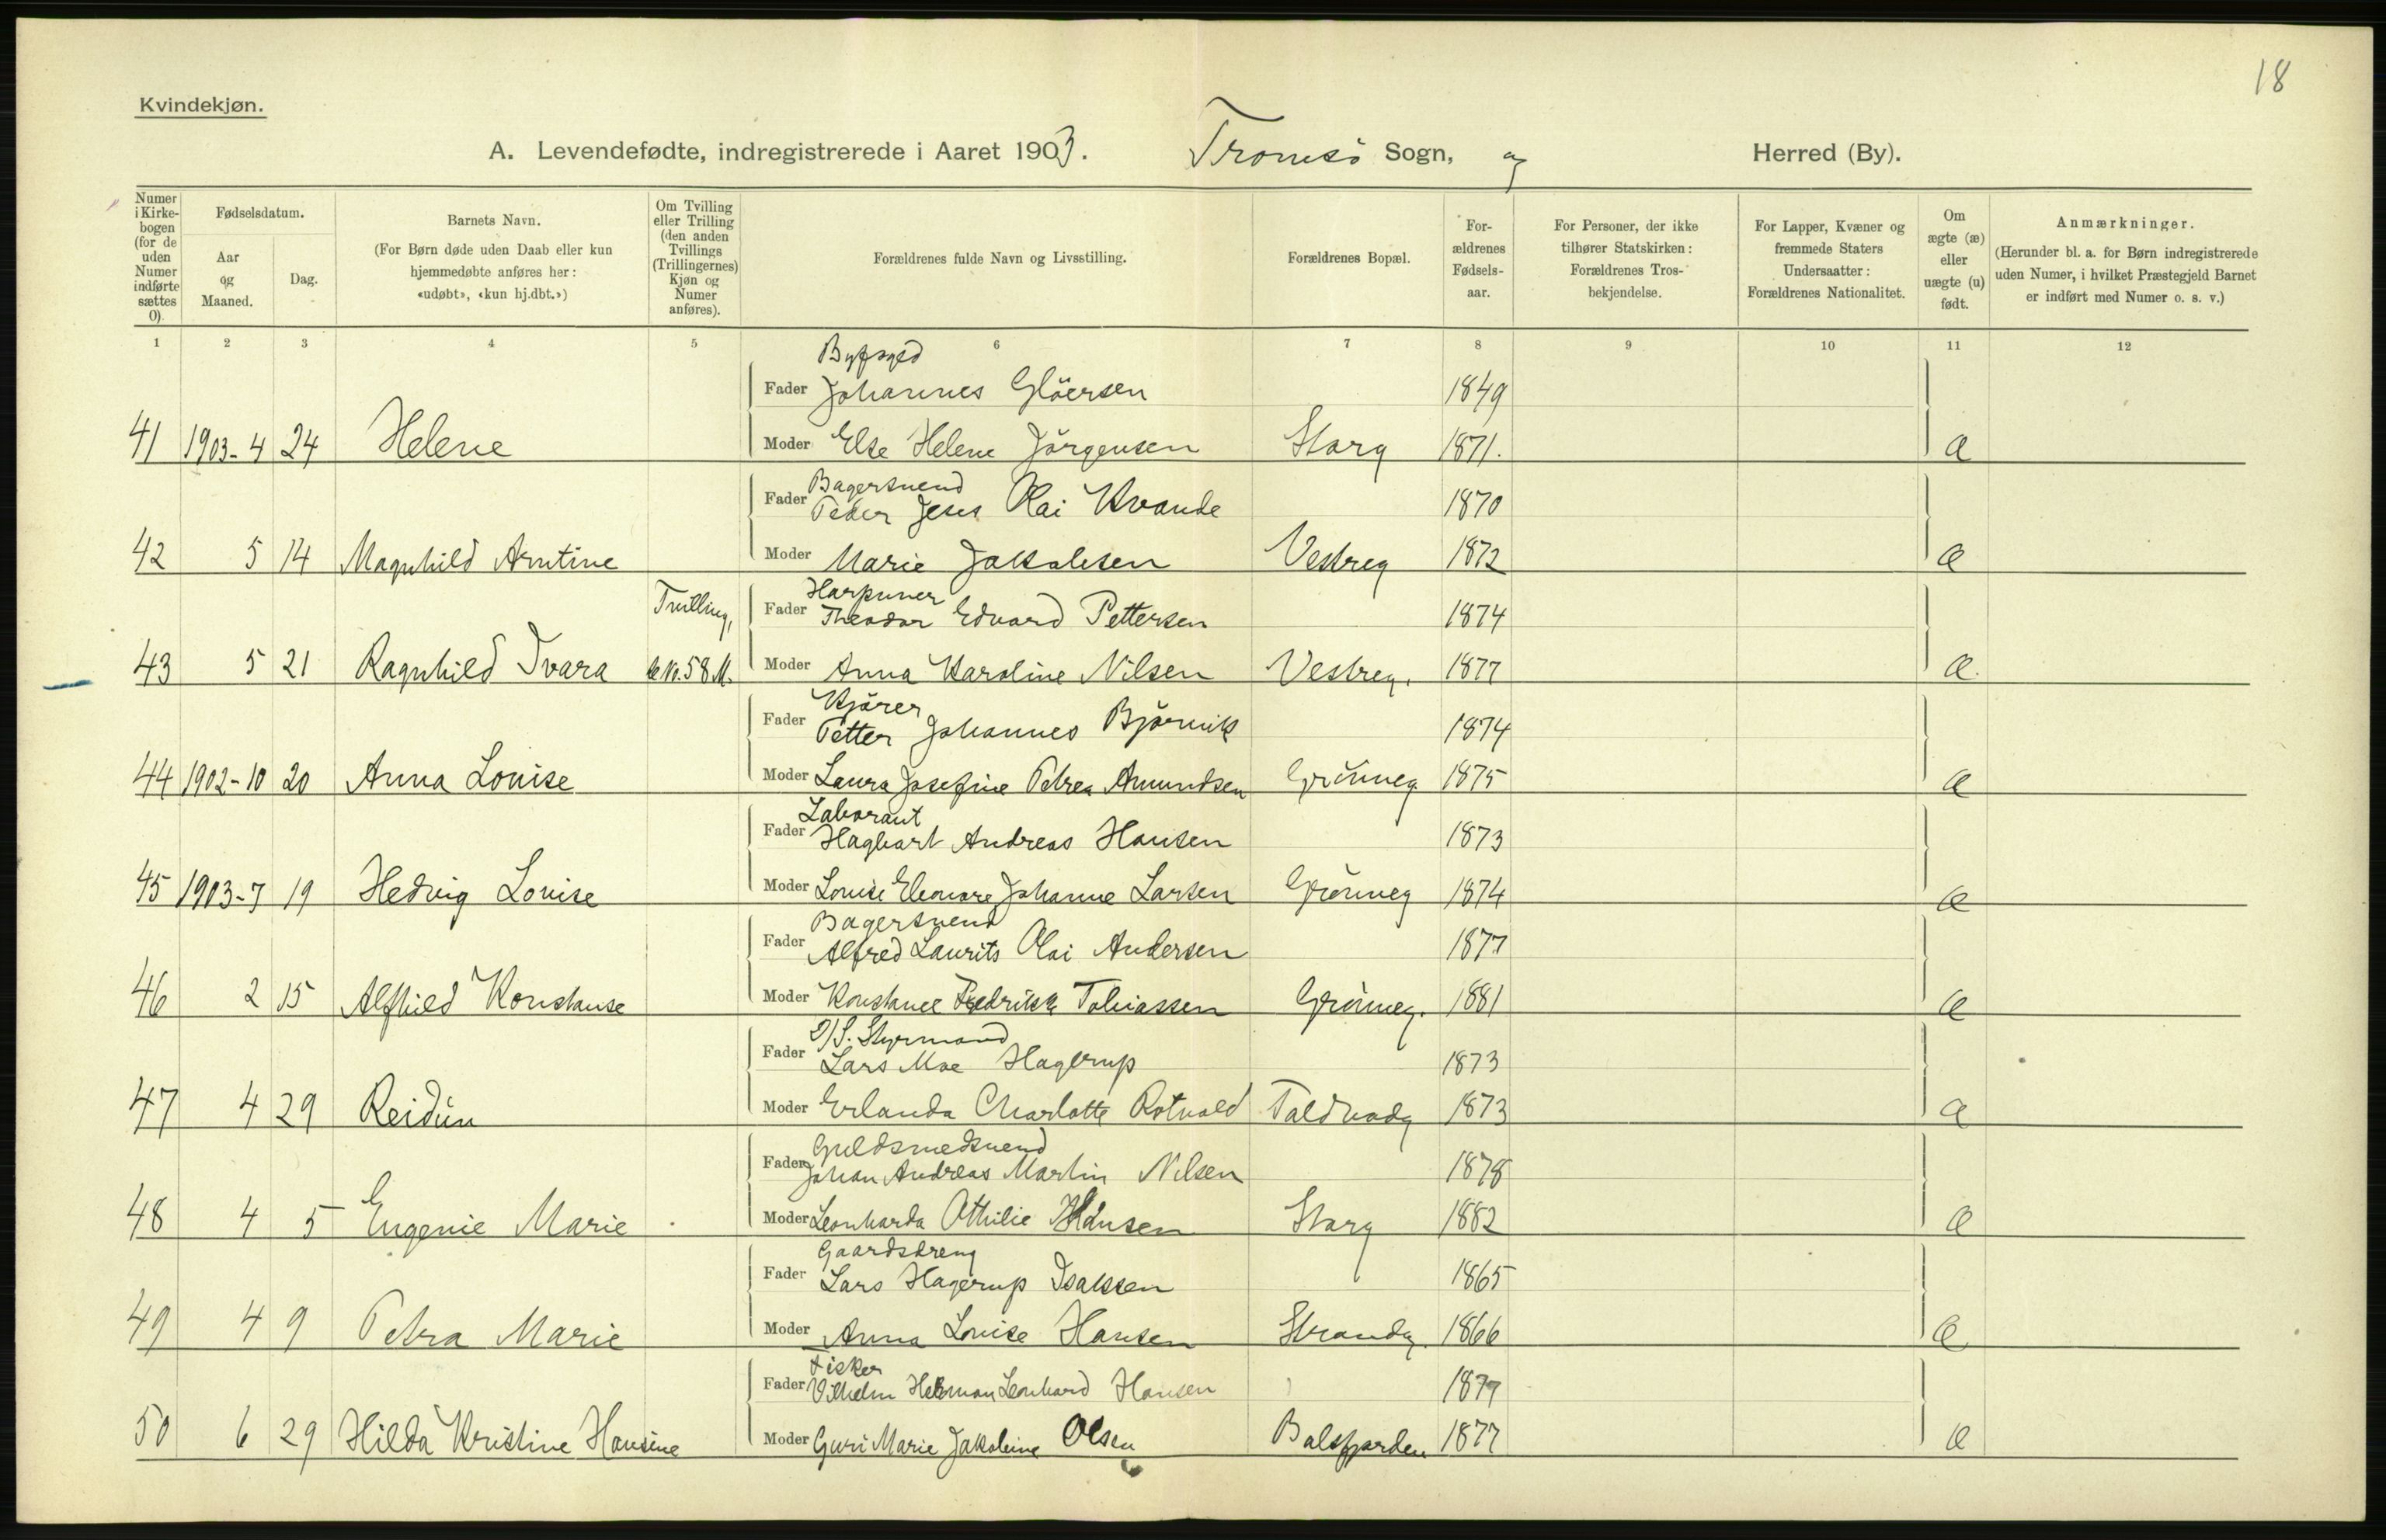 18
Kvindekjøn.
A. Levendefødte, indregistrerede i Aaret 1903. Tromsö Sogn, og Herred (By).
Numer i Kirke-bogen (for de uden Numer indførte sættes 0).
Fødselsdatum.
Aar og Maaned.
Dag.
Barnets Navn.
(For Børn døde uden Daab eller kun hjemmedøbte anføres her: «udøbt», «kun hj.dbt.»)
Om Tvilling eller Trilling (den anden Tvillings (Trillingernes) Kjøn og Numer anføres).
Forældrenes fulde Navn og Livsstilling.
Forældrenes Bopæl.
For-ældrenes Fødsels-aar.
For Personer, der ikke tilhører Statskirken: Forældrenes Tros-bekjendelse.
For Lapper, Kvæner og fremmede Staters Undersaatter: Forældrenes Nationalitet.
Om ægte (æ) eller uægte (u) født.
Anmærkninger.
(Herunder bl. a. for Børn indregistrerede uden Numer, i hvilket Præstegjeld Barnet er indført med Numer o. s. v.)
1 2 3 4 5 6 7 8 9 10 11 12
Byfoged
Fader Johannes Glöersen 1849
41 1903-4 24 Helene Moder Else Helene Jörgensen Storg 1871. æ
Bagersvend
Fader Peder Jens Olai Kvande 1870
42 5 14 Magnhild Arntine Moder Marie Jakobsen Vestreg 1872 æ
Tvilling, Harpuner
Fader Theodor Edvard Pettersen 1874
43 5 21 Ragnhild Ivara se No. 58 M. Moder Anna Karoline Nilsen Vestreg. 1877 æ
Kjörer
Fader Petter Johannes Björnvik 1874
44 1902-10 20 Anna Louise Moder Laura Josefine Petrea Amundsen Grönneg 1875 æ
Laborant
Fader Hagbart Andreas Hansen 1873
45 1903-7 19 Hedvig Louise Moder Louise Eleonore Johanne Larsen Grönneg 1874 æ
Bagersvend
Fader Alfred Laurits Olai Andersen 1877
46 2 15 Alfhild Konstanse Moder Konstance Fredrikke Tobiassen Grönneg. 1881 æ
D/S. Styrmand
Fader Lars Moe Hagerup 1873
47 4 29 Reidun Moder Erlanda Charlotte Rotvold Toldbodg 1873 æ
Guldsmedsvend
Fader Johan Andreas Martin Nilsen 1878
48 4 5 Eugenie Marie Moder Leonharda Othilie Hansen Storg 1882 æ
Gaardsdreng
Fader Lars Hagerup Isaksen 1865
49 4 9 Petra Marie Moder Anna Louise Hansen Strandg. 1866 æ
Fisker
Fader Vilhelm Herman Leonhard Hansen 1877
50 6 29 Hilda Kristine Hansine Moder Guri Marie Jakobine Olsen Balsfjorden 1877 æ